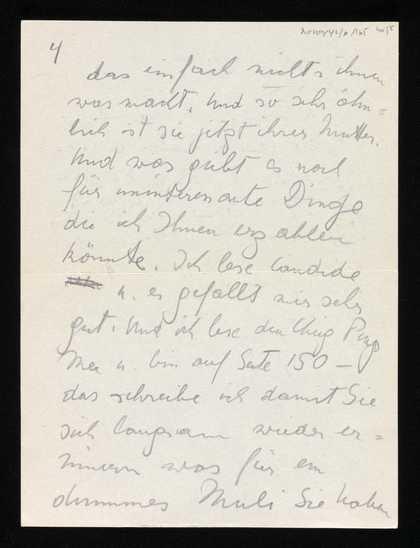 4
das einfach nichts ihnen
was macht. Und so sehr ähn=
lich ist sie jetzt ihrer Mutter.
Und was gibt es noch
für uninteressante Dinge
die ich Ihnen erzählen
könnte. Ich lese Candide
u. es gefällt mir sehr
gut. Und ich lese den King Ping
Mei u. bin auf Seite 150 –
das schreibe ich damit Sie
sich langsam wieder er=
innern was für ein
dummes Muli Sie haben